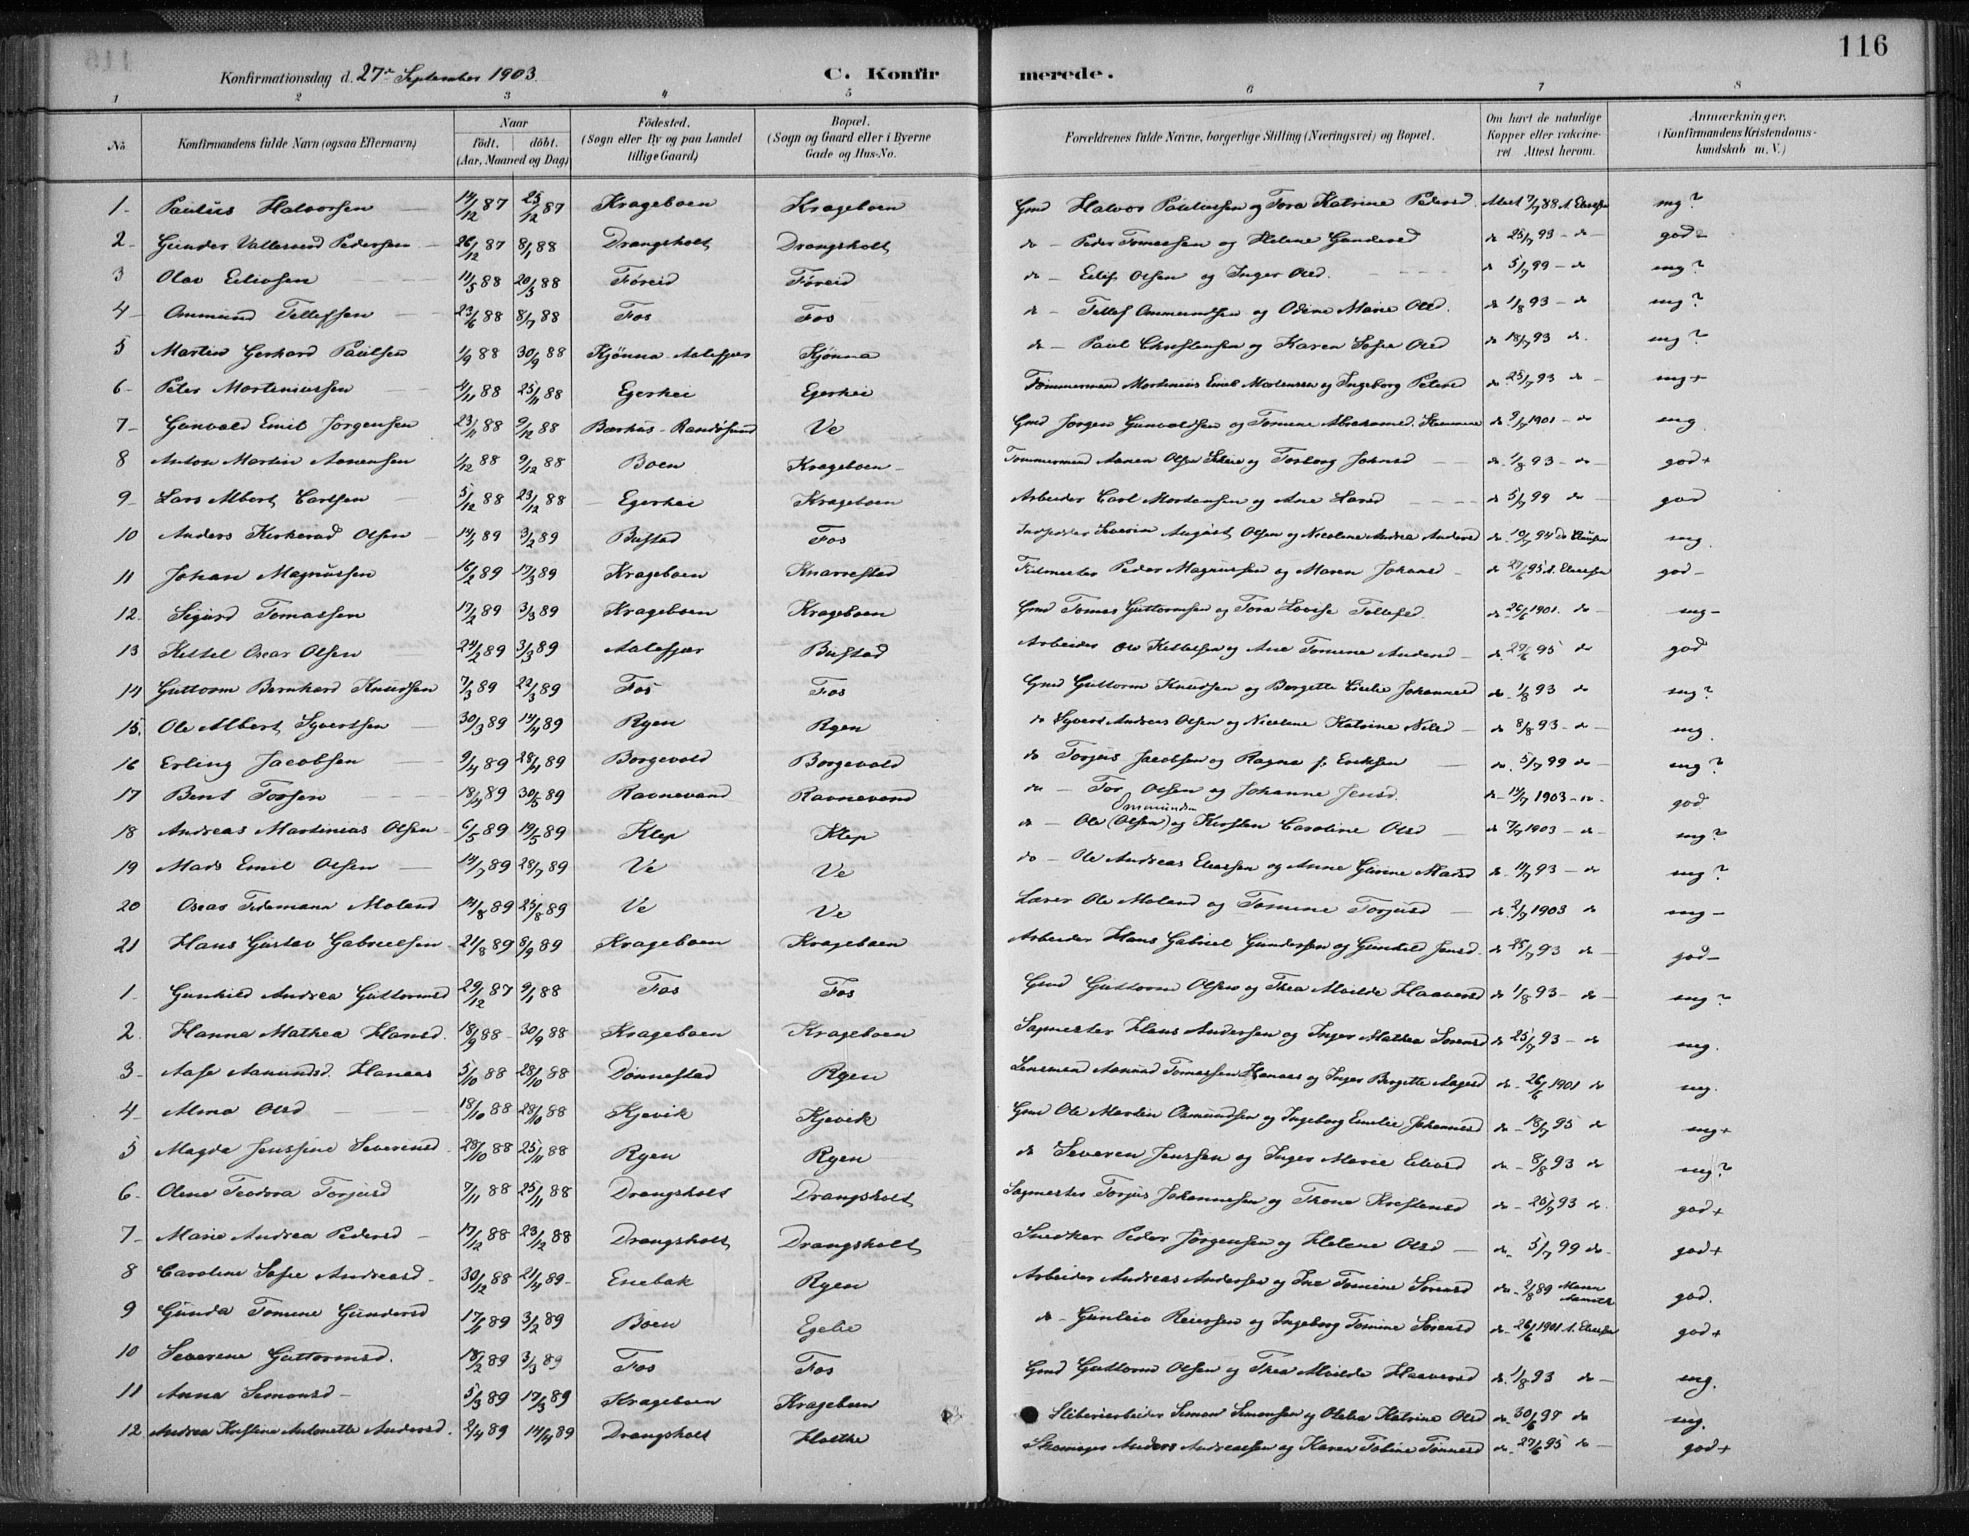 116
Konfirmationsdag d. 27de September 1903. C. Konfirmerede.
1 2 3 4 5 6 7 8
No. Konfirmandens fulde Navn (ogsaa Efternavn) Naar födt. döbt. (Aar, Maaned og Dag) Födested. (Sogn eller By og paa Landet tillige Gaard) Bopæl. (Sogn og Gaard eller i Byerne Gade og Hus-No. Forældrenes fulde Navne, borgerlige Stilling (Næringsvei) og Bopæl. Om havt de naturlige Kopper eller vakcineret. Attest herom. Anmærkninger. (Konfirmandens Kristendomskundskab m. V.)
1 Paulus Halvorsen 14/12 87 25/12 87 Krageboen Krageboen Gmd Halvor Paulussen og Tora Katrine Pedersd. Attest 7/7 88 A. Eliassen mg?
2 Gunder Valdemar Pedersen 26/12 87 8/1 88 Drangsholt Drangsholt do Peder Tomassen og Helene Gundersd do 25/7 93 do god-
3 Olav Eilivsen 11/5 88 20/5 88 Föreid Föreid do Eilif Olsen og Inger Olsd. do 5/7 99 do mg?
4 Ommund Tellefsen 23/6 88 8/7 88 Fos Fos do Tellef Ommundsen og Odine Marie Olsd. do 1/8 93 do mg?
5 Martin Gerhard Paulsen 1/9 88 30/9 88 Kjønna Aalefjær Kjønna do Paul Christensen og Karen Sofie Olsd do 18/7 93 do. mg?
6 Peter Morteniussen 4/11 88 25/11 88 Egerhei Egerhei Tömmermand Mortenius Emil Mortensen og Ingeborg Petersd do 25/7 93 do mg+
7 Gunvald Emil Jorgensen 23/11 88 9/12 88 Bærhus - Randösund Ve Gmd Jorgen Gunvaldsen og Tomine Abrahamsd. do 9/7 1901 do mg
8 Anton Martin Aanensen 1/12 88 9/12 88 Boen Krageboen Tømmermand Aanen Olsen og Torborg Johnsd do 1/8 93 do god+
9 Lars Albert Carlsen 5/12 88 23/12 88 Egerhei Krageboen Arbeider Carl Mortensen og Ane Larsd do 5/7 99 do god
10 Anders Kirkerud Olsen 14/1 89 3/2 89 Bustad Fos Severin August Olsen og Nicoline Andrea Andersd do 10/7 94 do mg.
11 Johan Magnussen 16/2 89 17/3 89 Krageboen Knarrestad Peder Magnussen og Maren Johansd do 27/6 95 A. Eliassen god-
12 Sigurd Tomassen 17/2 89 3/3 89 Krageboen Krageboen Gmd Tomas Guttormsen og Tora Lovise Tellefsd. do 26/6 1901. do mg-
13 Kittel Oscar Olsen 24/2 89 3/3 89 Aalefjær Bustad Arbeider Ole Kittelsen og Ane Tomine Andersd do 27/6 95 do god
14 Guttorm Bernhard Knudsen 7/3 89 22/3 89 Fos Fos Gmd Guttorm Knudsen og Borgette Cecilie Johannesd do 1/8 93 do mg?
15. Ole Albert Syvertsen 30/3 89 14/4 89 Ryen Ryen do Syvert Andreas Olsen og Nicoline Katrine Nilsd do 8/8 93 do mg.
16 Erling Jacobsen 9/4 89 28/4 89 Borgevold Borgevold do Torjus Jacobsen og Ragna f. Eriksen do 5/7 99 do mg?
17 Bent Torsen 18/4 89 30/5 89 Ravnevand Ravnevand do Tor Olsen og Johanne Jensd. do 14/7 1903 do. god
18 Andreas Martinius Olsen 6/5 89 19/5 89 Klep Klep do Ole (Olsen) Ommundsen og Kirsten Caroline Olsd do 7/7 1903 do mg?
19 Mads Emil Olsen 14/7 89 28/7 89 Ve Ve do Ole Andreas Eliassen og Anne Gurine Madsd do 11/7 93 do mg?
20 Oscar Tidemann Moland 14/8 89 25/8 89 Ve Ve Lærer Ole Moland og Tomine Torjusd do 2/7 1903 do mg-
21 Hans Gustav Gabrielsen 21/8 89 8/9 89 Krageboen Krageboen Arbeider Hans Gabriel Gundersen og Gunhild Jensd. do 25/7 93 do god-
1. Gunhild Andrea Guttormsd 29/12 87 9/1 88 Fos Fos Gmd Guttorm Olsen og Thea Alvilde Haaversd do 1/8 93 do mg?
2. Hanna Mathea Hansd. 18/9 88 30/9 88 Krageboen Krageboen Sagmester Hans Andersen og Inger Mathea Sorensd do 25/7 93 do mg.
3 Aase Aanundsd. Hanaas 5/10 88 28/10 88 Dönnestad Ryen Lensmand Aanund Tomassen Hanaas og Inger Bergette Aagesd do 26/6 1901 do mg.
4 Alma Olsd 18/10 88 28/10 88 Kjevik Kjevik Gmd Ole Martin Osmundsen og Ingeborg Emilie Johannesd do 18/7 95 do mg+
5 Magda Jensine Severinsd 28/10 88 25/11 88 Ryen Ryen do Severin Jenssen og Inger Marie Eilevsd do 8/8 93 do mg?
6 Olene Teodora Torjusd 7/11 88 25/11 88 Drangsholt Drangsholt Sagmester Torjus Johannesen og Thone Kristensd do 25/7 93 do. god+
7 Marie Andrea Pedersd 17/12 88 23/12 88 Drangsholt Drangsholt Snedker Peder Jörgensen og Helene Olsd do 5/7 99 do. god+
8 Caroline Sofie Andreasd 30/12 88 21/4 89 Enebak Ryen Arbeider Andreas Andersen og Ine Tomine Sörensd do 2/8 89 god.
9 Gunda Tomine Gundersd 17/1 89 3/2 89 Boen Egelie do Gunleiv Reiersen og Ingeborg Tomine Sørensd do 26/6 1901 A. Eliassen god+
10 Severine Guttormsd. 18/2 89 3/3 89 Fos Fos Gmd Guttorm Olsen og Thea Alvilde Haaversd do. 1/8 93 do mg.
11 Anna Simonsd 5/3 89 17/3 89 Krageboen Krageboen Sliberiarbeider Simon Simonsen og Otilia Katrine Olsd do 30/6 97 do mg.
12. Andrea Kristine Antonette Andersd. 2/4 89 14/4 89 Drangsholt Holthe Skomager Anders Andreassen og Karen Tobine Tønnesd do 27/6 95 do god+